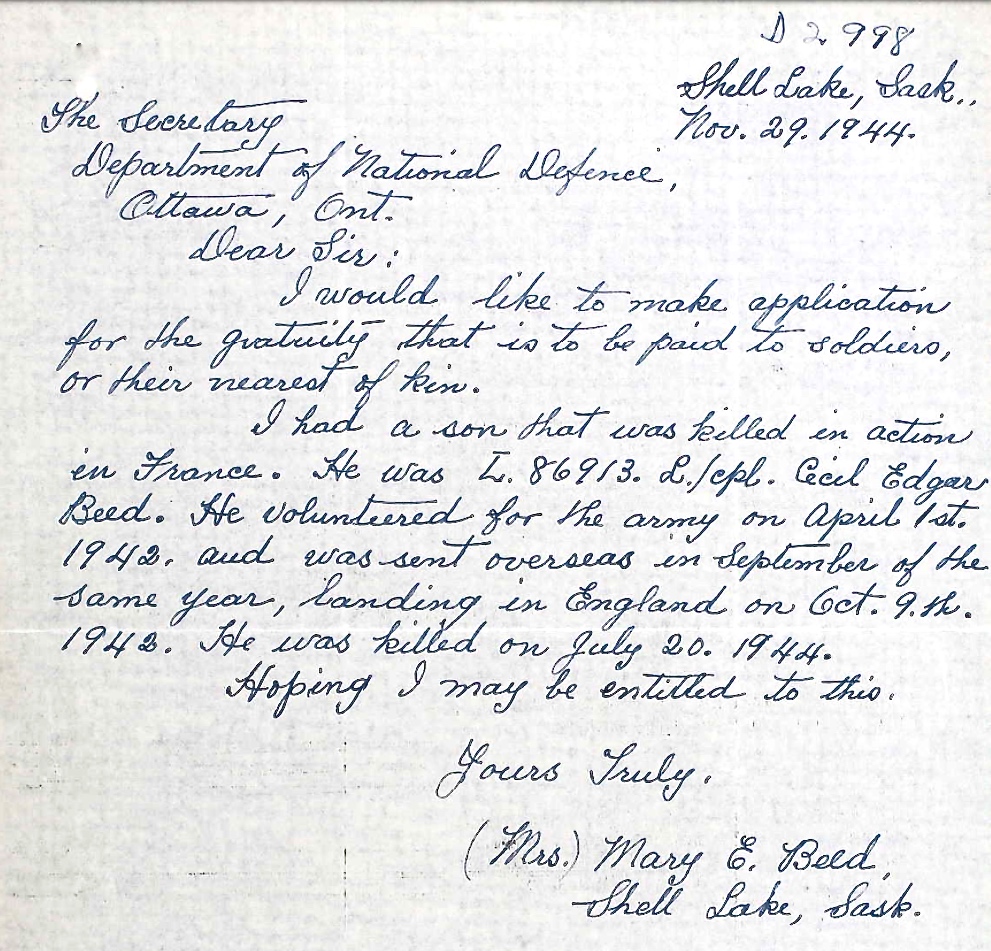 D 2 998
Shell Lake, Sask.,
Nov. 29. 1944.
The Secretary
Department of National Defence,
Ottawa, Ont.
Dear Sir:
I would like to make application
for the gratuity that is to be paid to soldiers,
or their nearest of kin.
I had a son that was killed in action
in France. He was L. 86913. L./cpl. Cecil Edgar
Beed. He volunteered for the army on April 1st.
1942. and was sent overseas in September of the
same year, landing in England on Oct. 9.th.
1942. He was killed on July 20. 1944.
Hoping I may be entitled to this.
Yours Truly.
(Mrs.) Mary E. Beed,
Shell Lake, Sask.